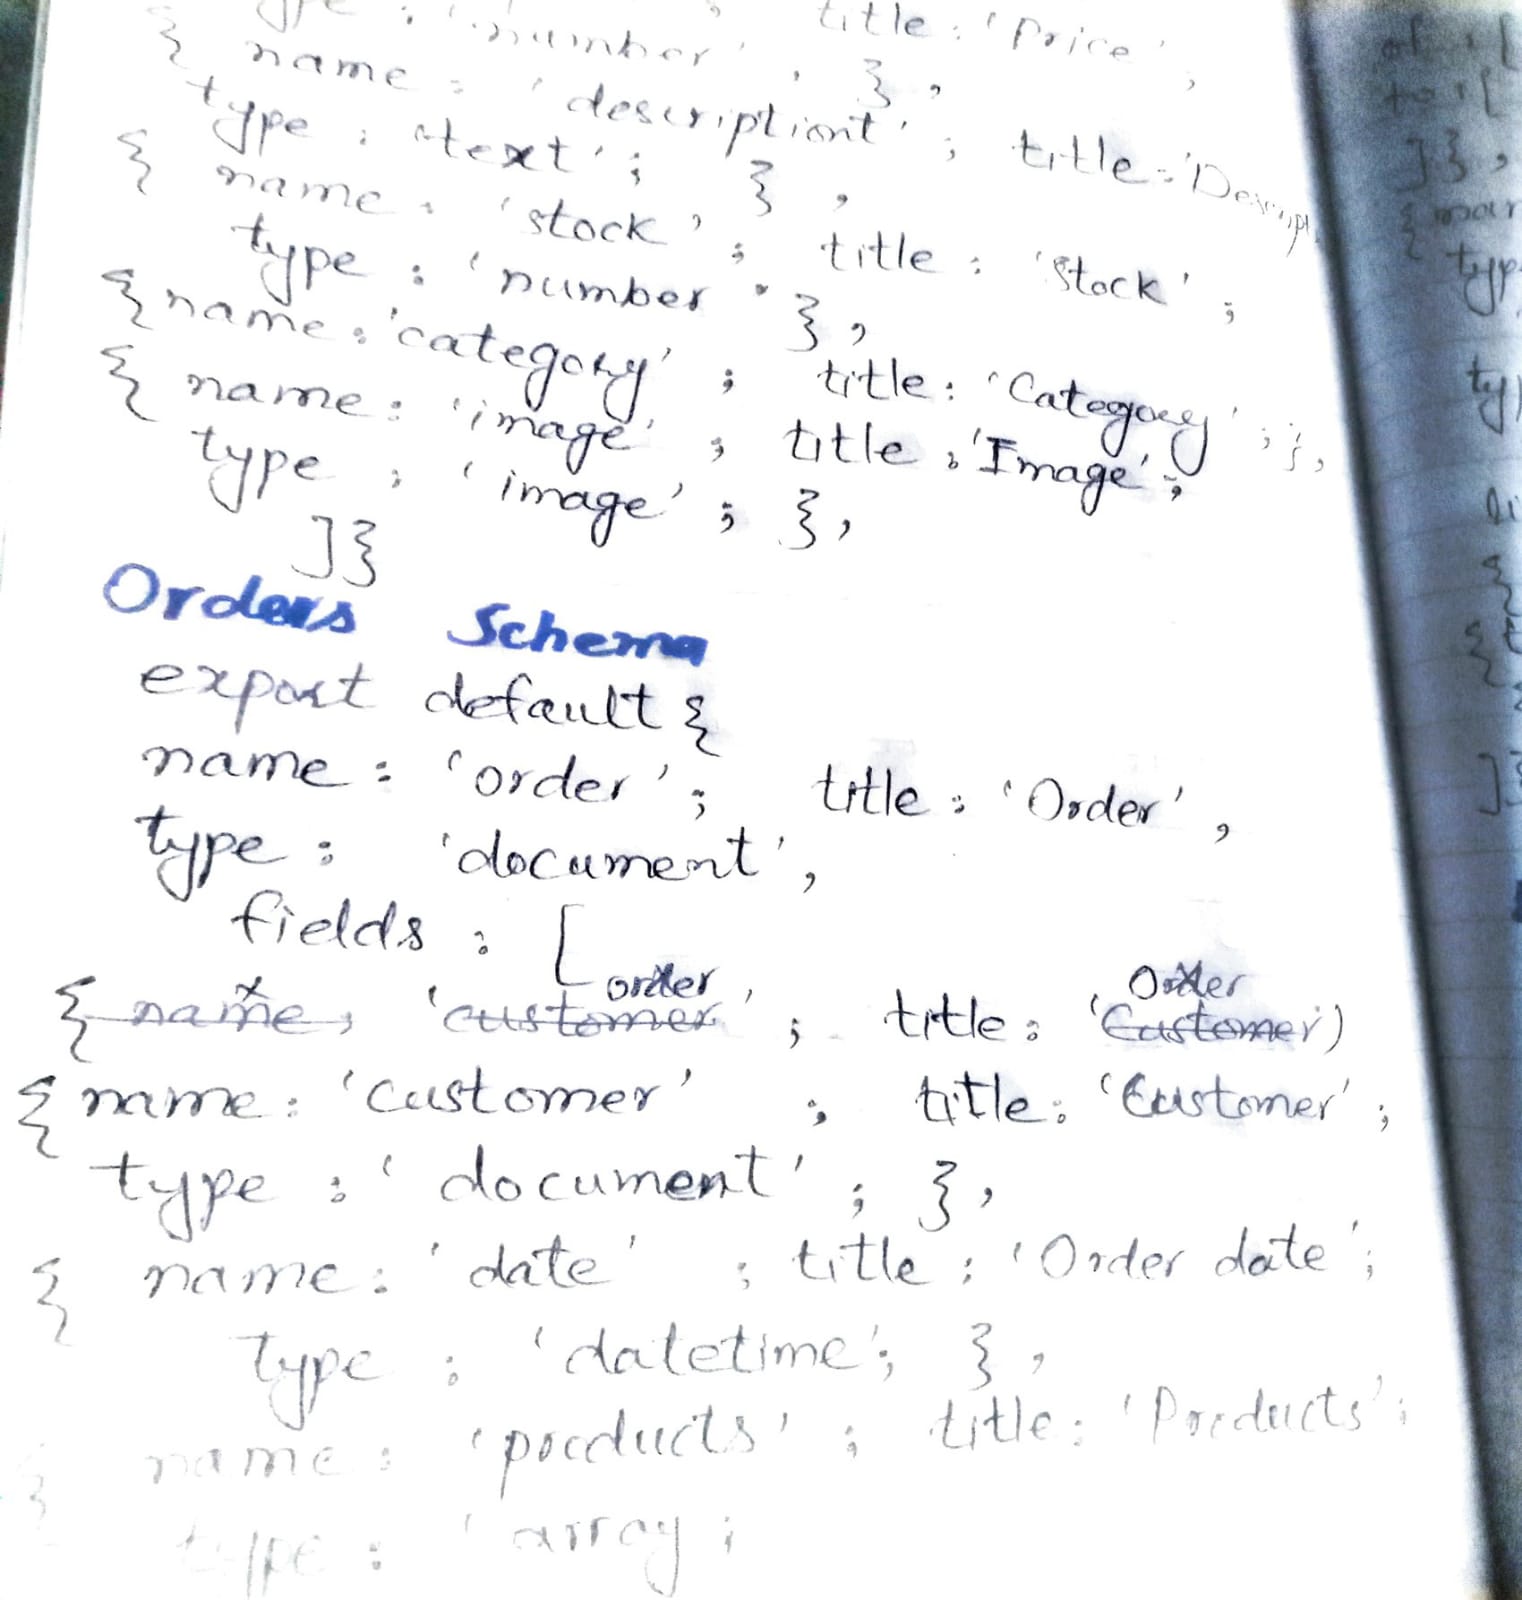 type : 'number', }, title : 'Price',
{ name : 'descriptiont' ; title : 'Descript
type : 'text' ; } ,
{ name : 'stock' ; title : 'Stock' ;
type : 'number' } ,
{ name : 'category' ; title : 'Category' ; } ,
{ name : 'image' ; title : 'Image' ;
type : 'image' ; } ,
] }
Orders Schema
export default {
name : 'order' ; title : 'Order' ,
type : 'document' ,
fields : [
order Order
{ name ; 'customer' ; title : 'Customer')
{ name : 'Customer' ; title : 'Customer' ;
type : 'document' ; } ,
{ name : 'date' ; title : 'Order date' ;
type : 'datetime' ; } ,
{ name : 'products' ; title : 'Products' ;
type : 'array ;
of : [
to : [
] } ,
{
typ
ty
{
{
]